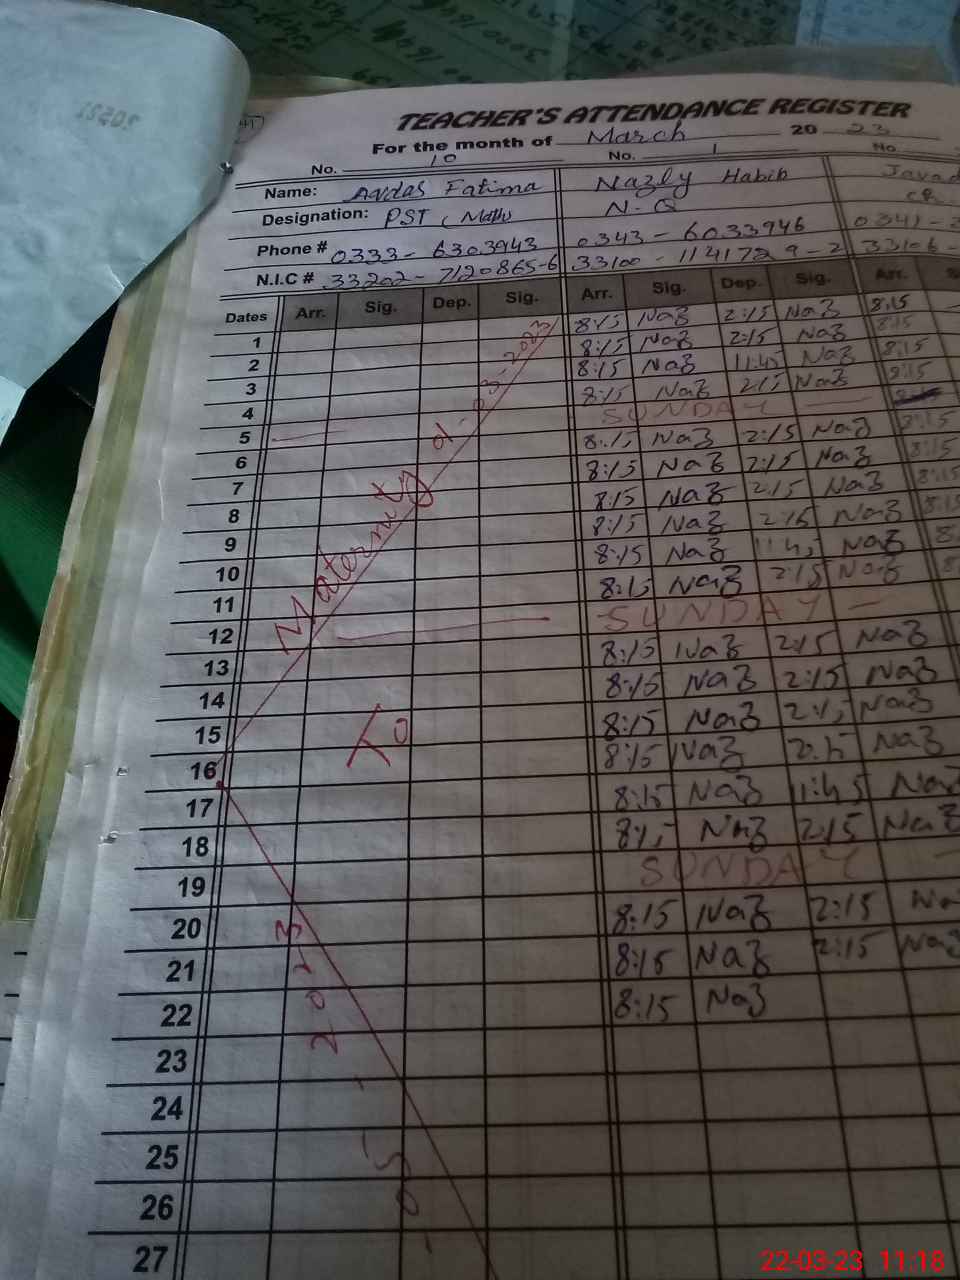 TEACHER'S ATTENDANCE REGISTER
For the month of March 2023
No. 10 No. 1 No.
Name: Fatima Nazly Habib
Designation: PST (Math) N-Q
Phone # 0333-6303943 0343-6033946 0341-
N.I.C # 33202-7120865-6 33100-1141729-2 33106-
Dates Arr. Sig. Dep. Sig. Arr. Sig. Dep. Sig. Arr.
1 8:15 Naz 2:15 Naz 8:15
2 8:15 Naz 2:15 Naz 8:15
3 8:15 Naz 11:45 Naz 8:15
4 8:15 Naz 2:15 Naz 8:15
5 SUNDAY
6 8:15 Naz 2:15 Naz 8:15
7 8:15 Naz 2:15 Naz 8:15
8 8:15 Naz 2:15 Naz 8:15
9 8:15 Naz 2:15 Naz 8:15
10 8:15 Naz 11:45 Naz
11 8:15 Naz 2:15 Naz
12 SUNDAY
13 8:15 Naz 2:15 Naz
14 8:15 Naz 2:15 Naz
15 8:15 Naz 2:15 Naz
16 8:15 Naz 2:15 Naz
17 8:15 Naz 11:45 Naz
18 8:15 Naz 2:15 Naz
19 SUNDAY
20 8:15 Naz 2:15
21 8:15 Naz 2:15 Naz
22 8:15 Naz
23
24
25
26
27
Maternity 01-03-2023
To
-05-2023
22-03-23 11:18